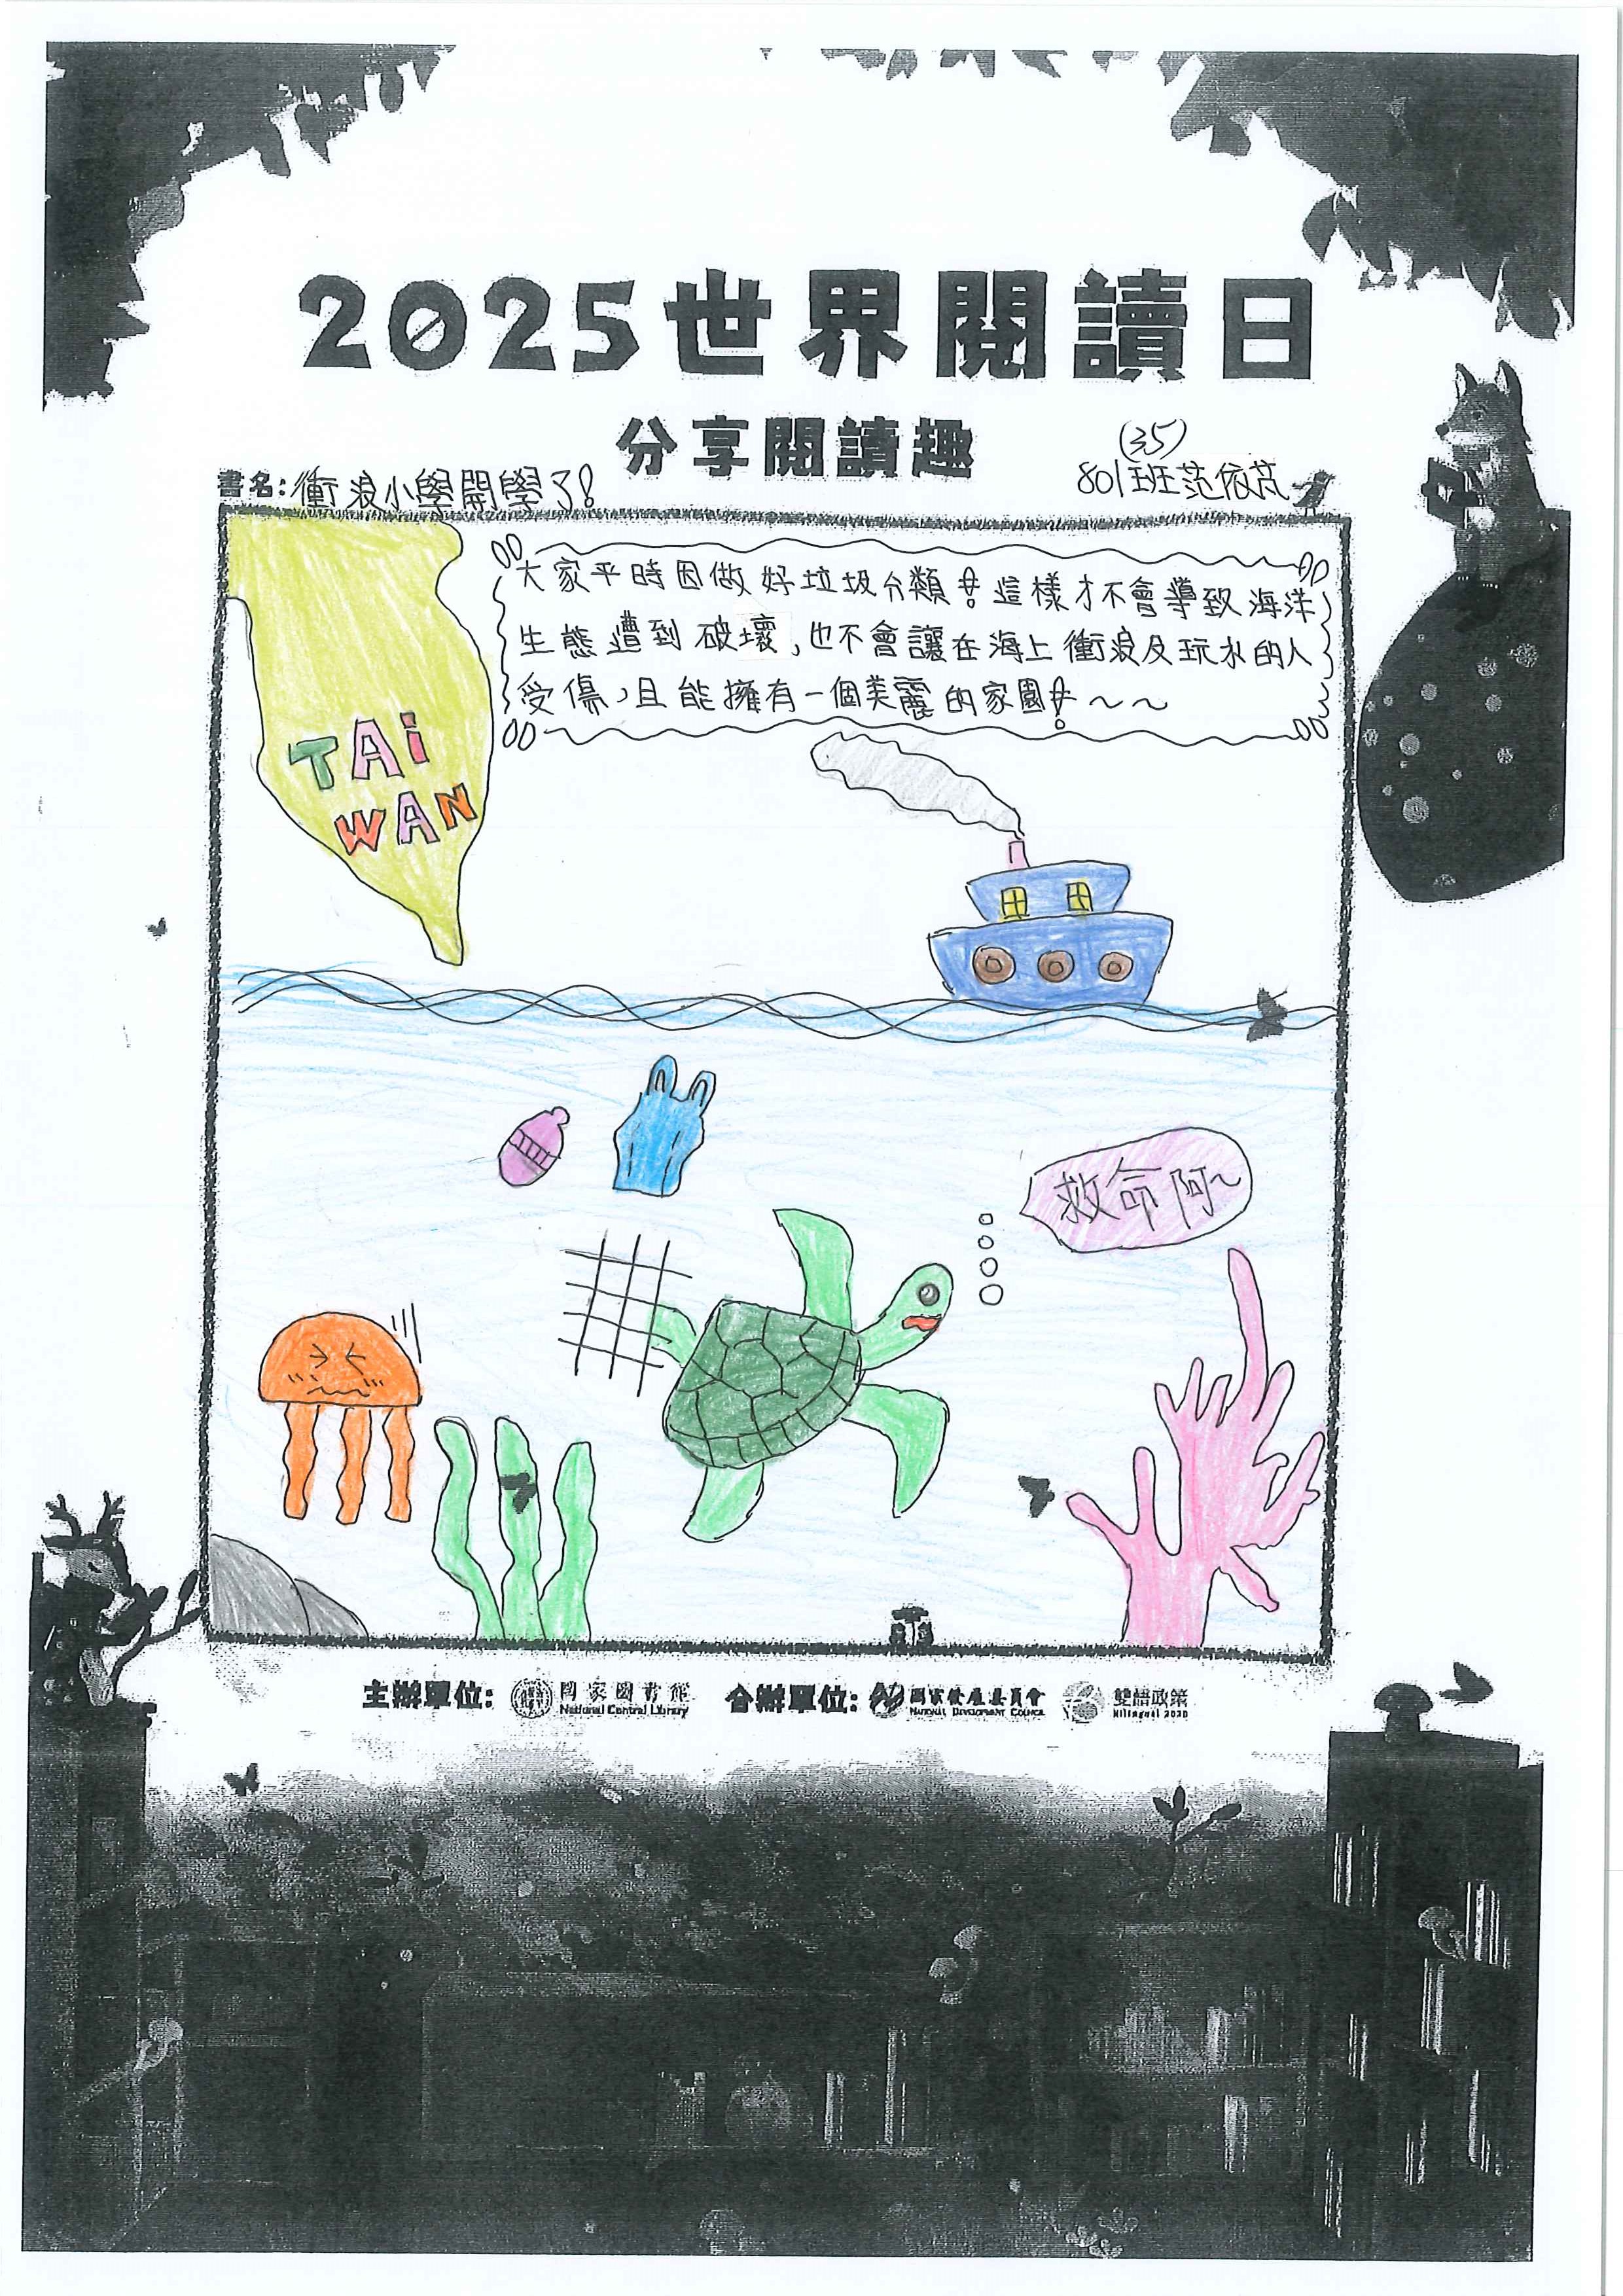 2025世界閱讀日
分享閱讀趣
(35)
書名:衝浪小學開學了!
801班范依芃
大家平時因做好垃圾分類!這樣才不會導致海洋
生態遭到破壞,也不會讓在海上衝浪及玩水的人
受傷,且能擁有一個美麗的家園!~~
TAi
WAN
救命阿~
主辦單位: 國家圖書館 National Central Library 合辦單位: 國家發展委員會 NATIONAL DEVELOPMENT COUNCIL 雙語政策 Bilingual 2030